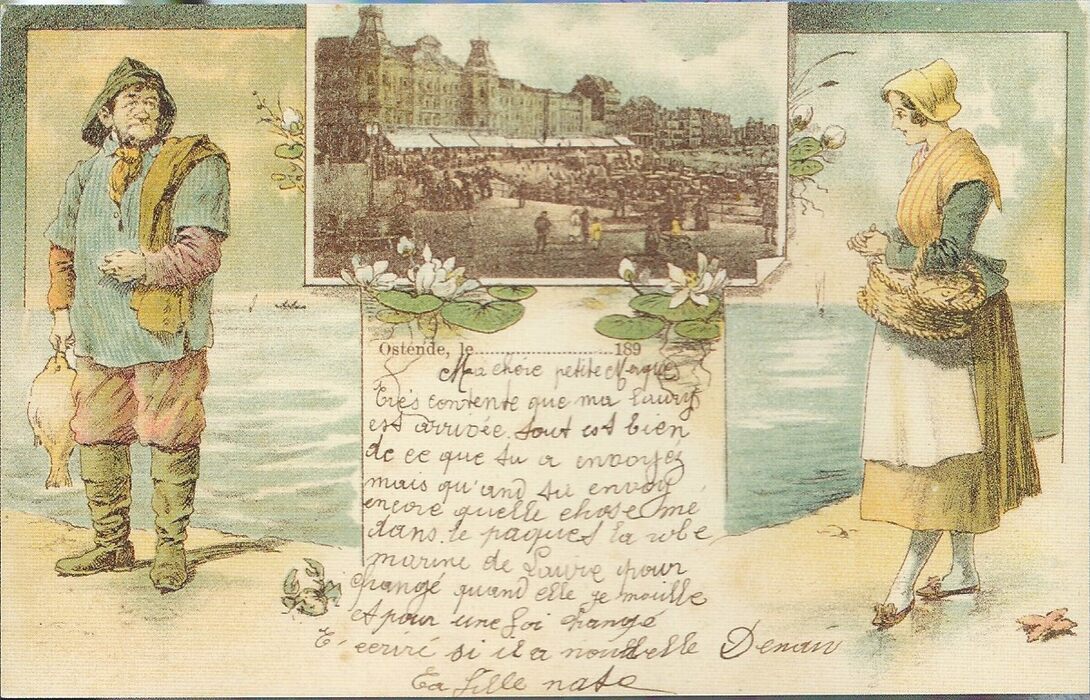 Ostende, le 189
Ma chère petite
très contente que ma laury
est arrivée. tout est bien
de ce que tu a envoyez
mais qu'and tu envoy
encore quelle chose me
dans le paquet ta robe
marine de Laurre pour
changé quand elle se mouille
et pour une foi changé
écrire si il a nouvelle Demain
ta fille nata